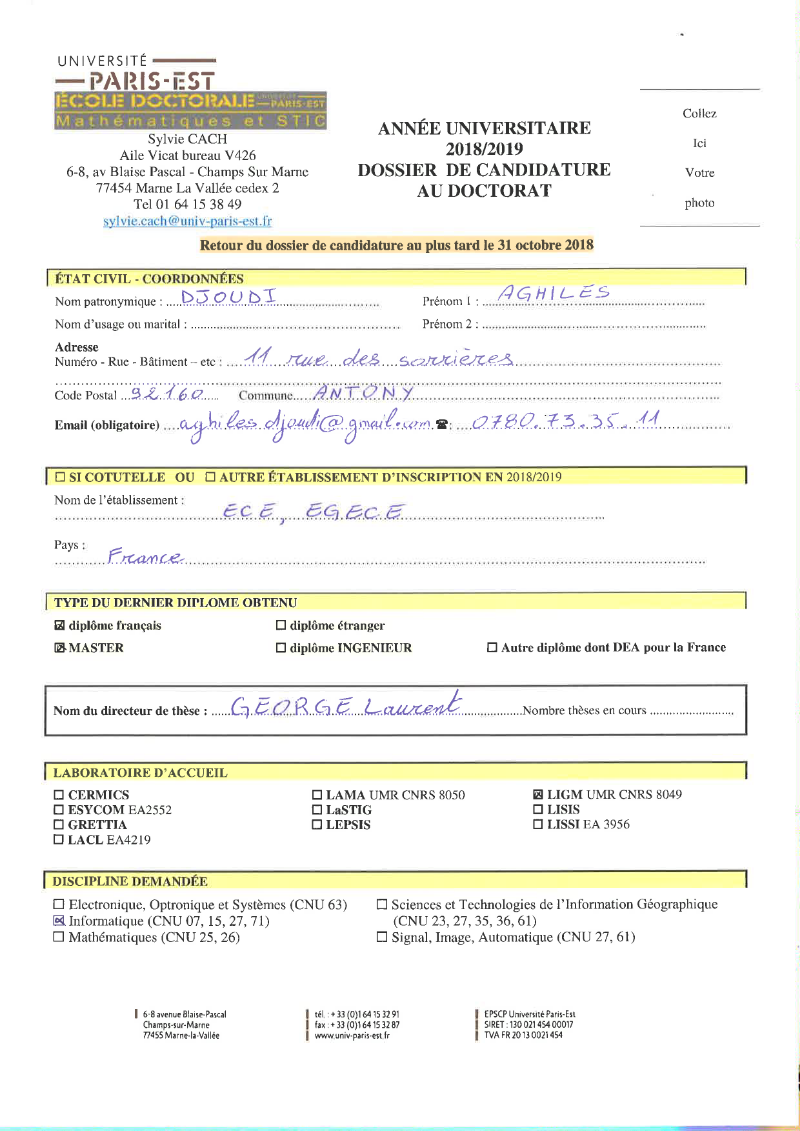 UNIVERSITÉ
PARIS-EST
ÉCOLE DOCTORALE UNIVERSITÉ PARIS-EST
Mathématiques et STIC
Sylvie CACH
Aile Vicat bureau V426
6-8, av Blaise Pascal - Champs Sur Marne
77454 Marne La Vallée cedex 2
Tel 01 64 15 38 49
sylvie.cach@univ-paris-est.fr
ANNÉE UNIVERSITAIRE
2018/2019
DOSSIER DE CANDIDATURE
AU DOCTORAT
Collez
Ici
Votre
photo
Retour du dossier de candidature au plus tard le 31 octobre 2018
ÉTAT CIVIL - COORDONNÉES
Nom patronymique : DJOUDI Prénom 1 : AGHILES
Nom d'usage ou marital : Prénom 2 :
Adresse
Numéro - Rue - Bâtiment – etc : 11 rue des sarrières
Code Postal 92160 Commune ANTONY
Email (obligatoire) aghiles.djoudi@gmail.com ☎: 0780.73.35.11
☐ SI COTUTELLE OU ☐ AUTRE ÉTABLISSEMENT D'INSCRIPTION EN 2018/2019
Nom de l'établissement :
ECE, EGECE
Pays :
France
TYPE DU DERNIER DIPLOME OBTENU
☒ diplôme français ☐ diplôme étranger
☒ MASTER ☐ diplôme INGENIEUR ☐ Autre diplôme dont DEA pour la France
Nom du directeur de thèse : GEORGE Laurent Nombre thèses en cours
LABORATOIRE D'ACCUEIL
☐ CERMICS ☐ LAMA UMR CNRS 8050 ☒ LIGM UMR CNRS 8049
☐ ESYCOM EA2552 ☐ LaSTIG ☐ LISIS
☐ GRETTIA ☐ LEPSIS ☐ LISSI EA 3956
☐ LACL EA4219
DISCIPLINE DEMANDÉE
☐ Electronique, Optronique et Systèmes (CNU 63) ☐ Sciences et Technologies de l'Information Géographique
☒ Informatique (CNU 07, 15, 27, 71) (CNU 23, 27, 35, 36, 61)
☐ Mathématiques (CNU 25, 26) ☐ Signal, Image, Automatique (CNU 27, 61)
6-8 avenue Blaise-Pascal
Champs-sur-Marne
77455 Marne-la-Vallée
tél. : + 33 (0)1 64 15 32 91
fax : + 33 (0)1 64 15 32 87
www.univ-paris-est.fr
EPSCP Université Paris-Est
SIRET : 130 021 454 00017
TVA FR 20 13 0021 454